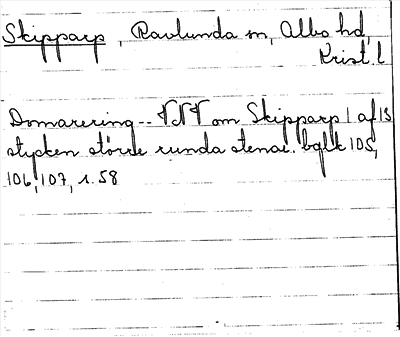 Skipparp, Ravlunda sn, Albo hd,
Krist. l
Domarering -- NNV om Skipparp 1 af 13
stycken större runda stenar. bglk 105,
106, 107, s. 58